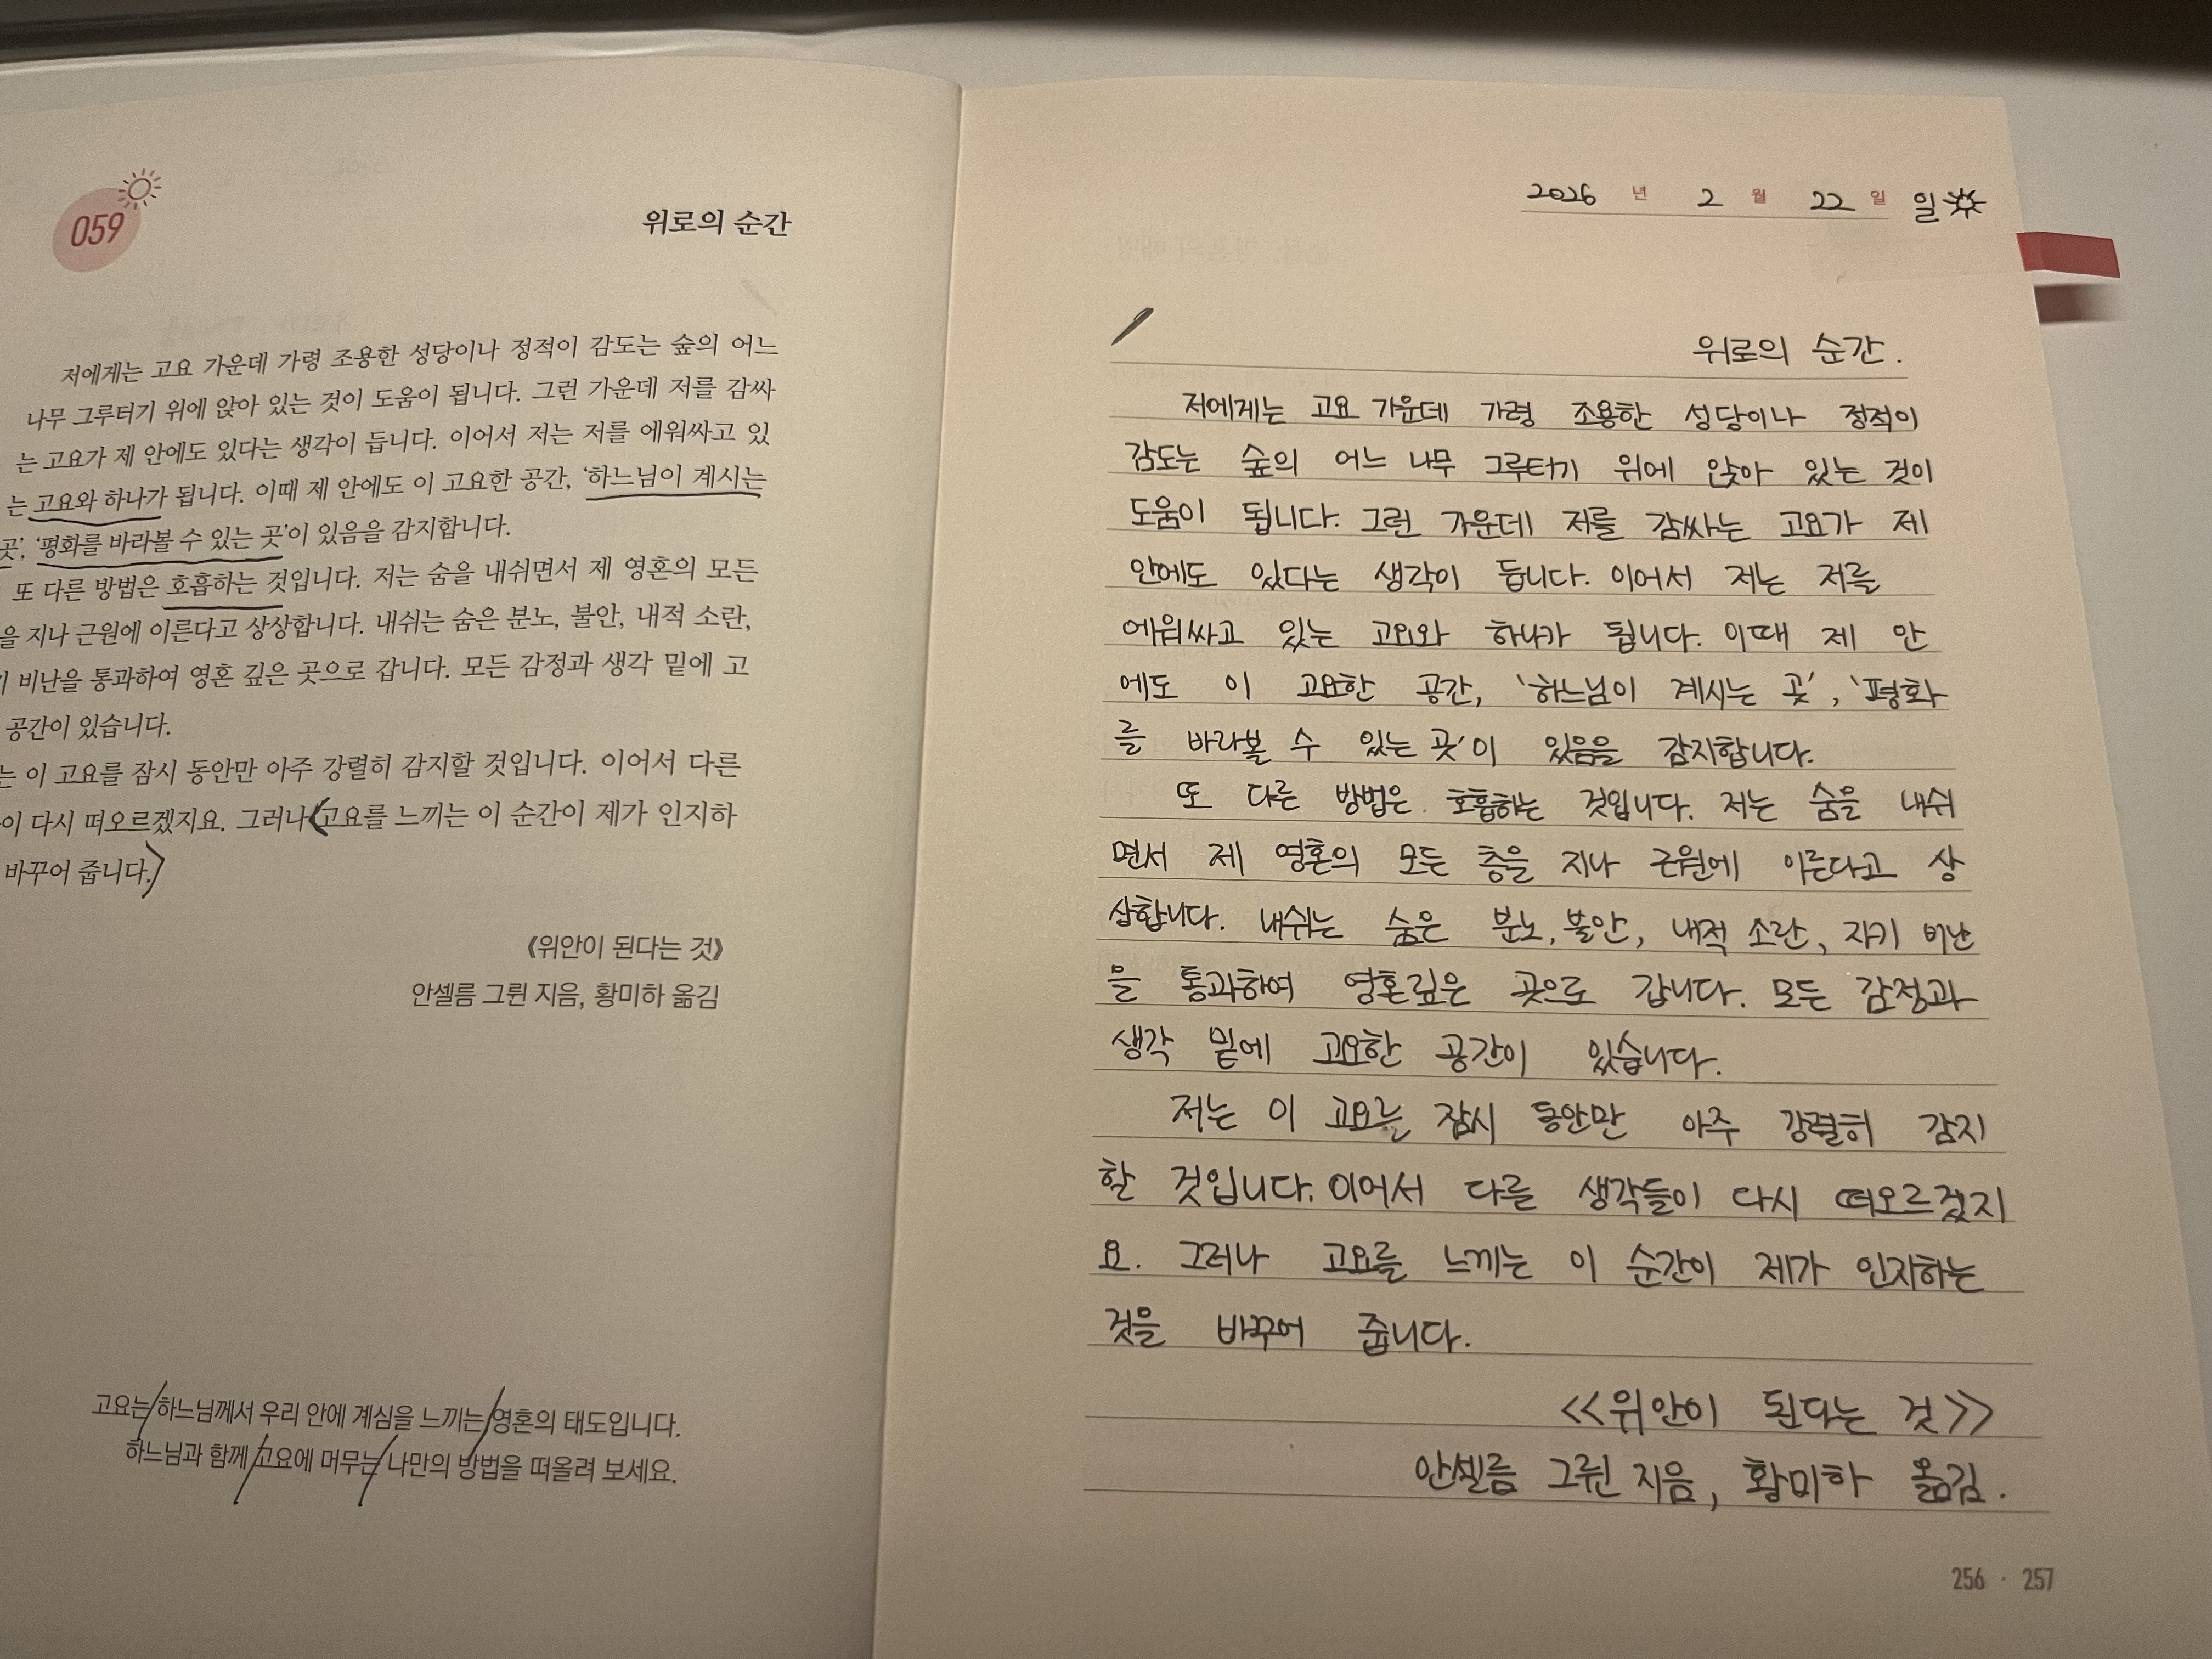 059
위로의 순간
저에게는 고요 가운데 가령 조용한 성당이나 정적이 감도는 숲의 어느
나무 그루터기 위에 앉아 있는 것이 도움이 됩니다. 그런 가운데 저를 감싸
는 고요가 제 안에도 있다는 생각이 듭니다. 이어서 저는 저를 에워싸고 있
는 고요와 하나가 됩니다. 이때 제 안에도 이 고요한 공간, ‘하느님이 계시는
곳’, ‘평화를 바라볼 수 있는 곳’이 있음을 감지합니다.
또 다른 방법은 호흡하는 것입니다. 저는 숨을 내쉬면서 제 영혼의 모든
을 지나 근원에 이른다고 상상합니다. 내쉬는 숨은 분노, 불안, 내적 소란,
비난을 통과하여 영혼 깊은 곳으로 갑니다. 모든 감정과 생각 밑에 고
공간이 있습니다.
는 이 고요를 잠시 동안만 아주 강렬히 감지할 것입니다. 이어서 다른
이 다시 떠오르겠지요. 그러나 고요를 느끼는 이 순간이 제가 인지하
바꾸어 줍니다.
《위안이 된다는 것》
안셀름 그륀 지음, 황미하 옮김
고요는 하느님께서 우리 안에 계심을 느끼는 영혼의 태도입니다.
하느님과 함께 고요에 머무는 나만의 방법을 떠올려 보세요.
2026 년 2 월 22 일 일
위로의 순간.
저에게는 고요 가운데 가령 조용한 성당이나 정적이
감도는 숲의 어느 나무 그루터기 위에 앉아 있는 것이
도움이 됩니다. 그런 가운데 저를 감싸는 고요가 제
안에도 있다는 생각이 듭니다. 이어서 저는 저를
에워싸고 있는 고요와 하나가 됩니다. 이때 제 안
에도 이 고요한 공간, ‘하느님이 계시는 곳’, ‘평화
를 바라볼 수 있는 곳’이 있음을 감지합니다.
또 다른 방법은 호흡하는 것입니다. 저는 숨을 내쉬
면서 제 영혼의 모든 층을 지나 근원에 이른다고 상
상합니다. 내쉬는 숨은 분노, 불안, 내적 소란, 자기 비난
을 통과하여 영혼깊은 곳으로 갑니다. 모든 감정과
생각 밑에 고요한 공간이 있습니다.
저는 이 고요를 잠시 동안만 아주 강렬히 감지
할 것입니다. 이어서 다를 생각들이 다시 떠오르겠지
요. 그러나 고요를 느끼는 이 순간이 제가 인지하는
것을 바꾸어 줍니다.
<<위안이 된다는 것>>
안셀름 그륀 지음, 황미하 옮김.
256 · 257